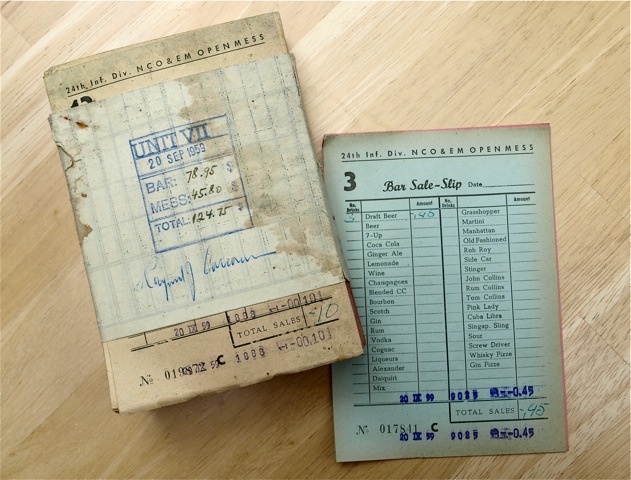 24th Inf. Div. NCO & EM OPEN MESS
UNIT VII
20 SEP 1959
BAR: 78.95 $
MESS: 45.80 $
TOTAL: 124.75 $
20 IX 59
TOTAL SALES -10
No
C
24th Inf. Div. NCO & EM OPEN MESS
3 Bar Sale-Slip Date
No. Drinks Amount No. Drinks Amount
3 Draft Beer -.45
Beer
7-Up
Coca Cola
Ginger Ale
Lemonade
Wine
Champagnes
Blended CC
Bourbon
Scotch
Gin
Rum
Vodka
Cognac
Liqueurs
Alexander
Daiquiri
Mix
Grasshopper
Martini
Manhattan
Old Fashioned
Rob Roy
Side Car
Stinger
John Collins
Rum Collins
Tom Collins
Pink Lady
Cuba Libra
Singap. Sling
Sour
Screw Driver
Whisky Fizze
Gin Fizze
20 IX 59 9025 -0.45
TOTAL SALES -.45
No 017841 C
20 IX 59 9025 -0.45